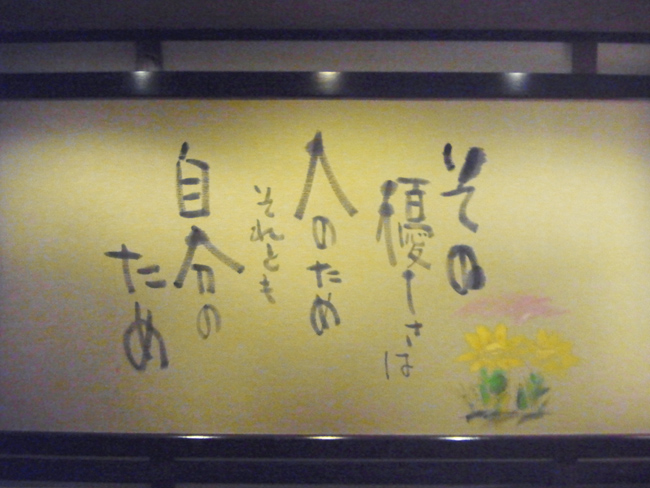 その
優しさは
人のため
それとも
自分の
ため